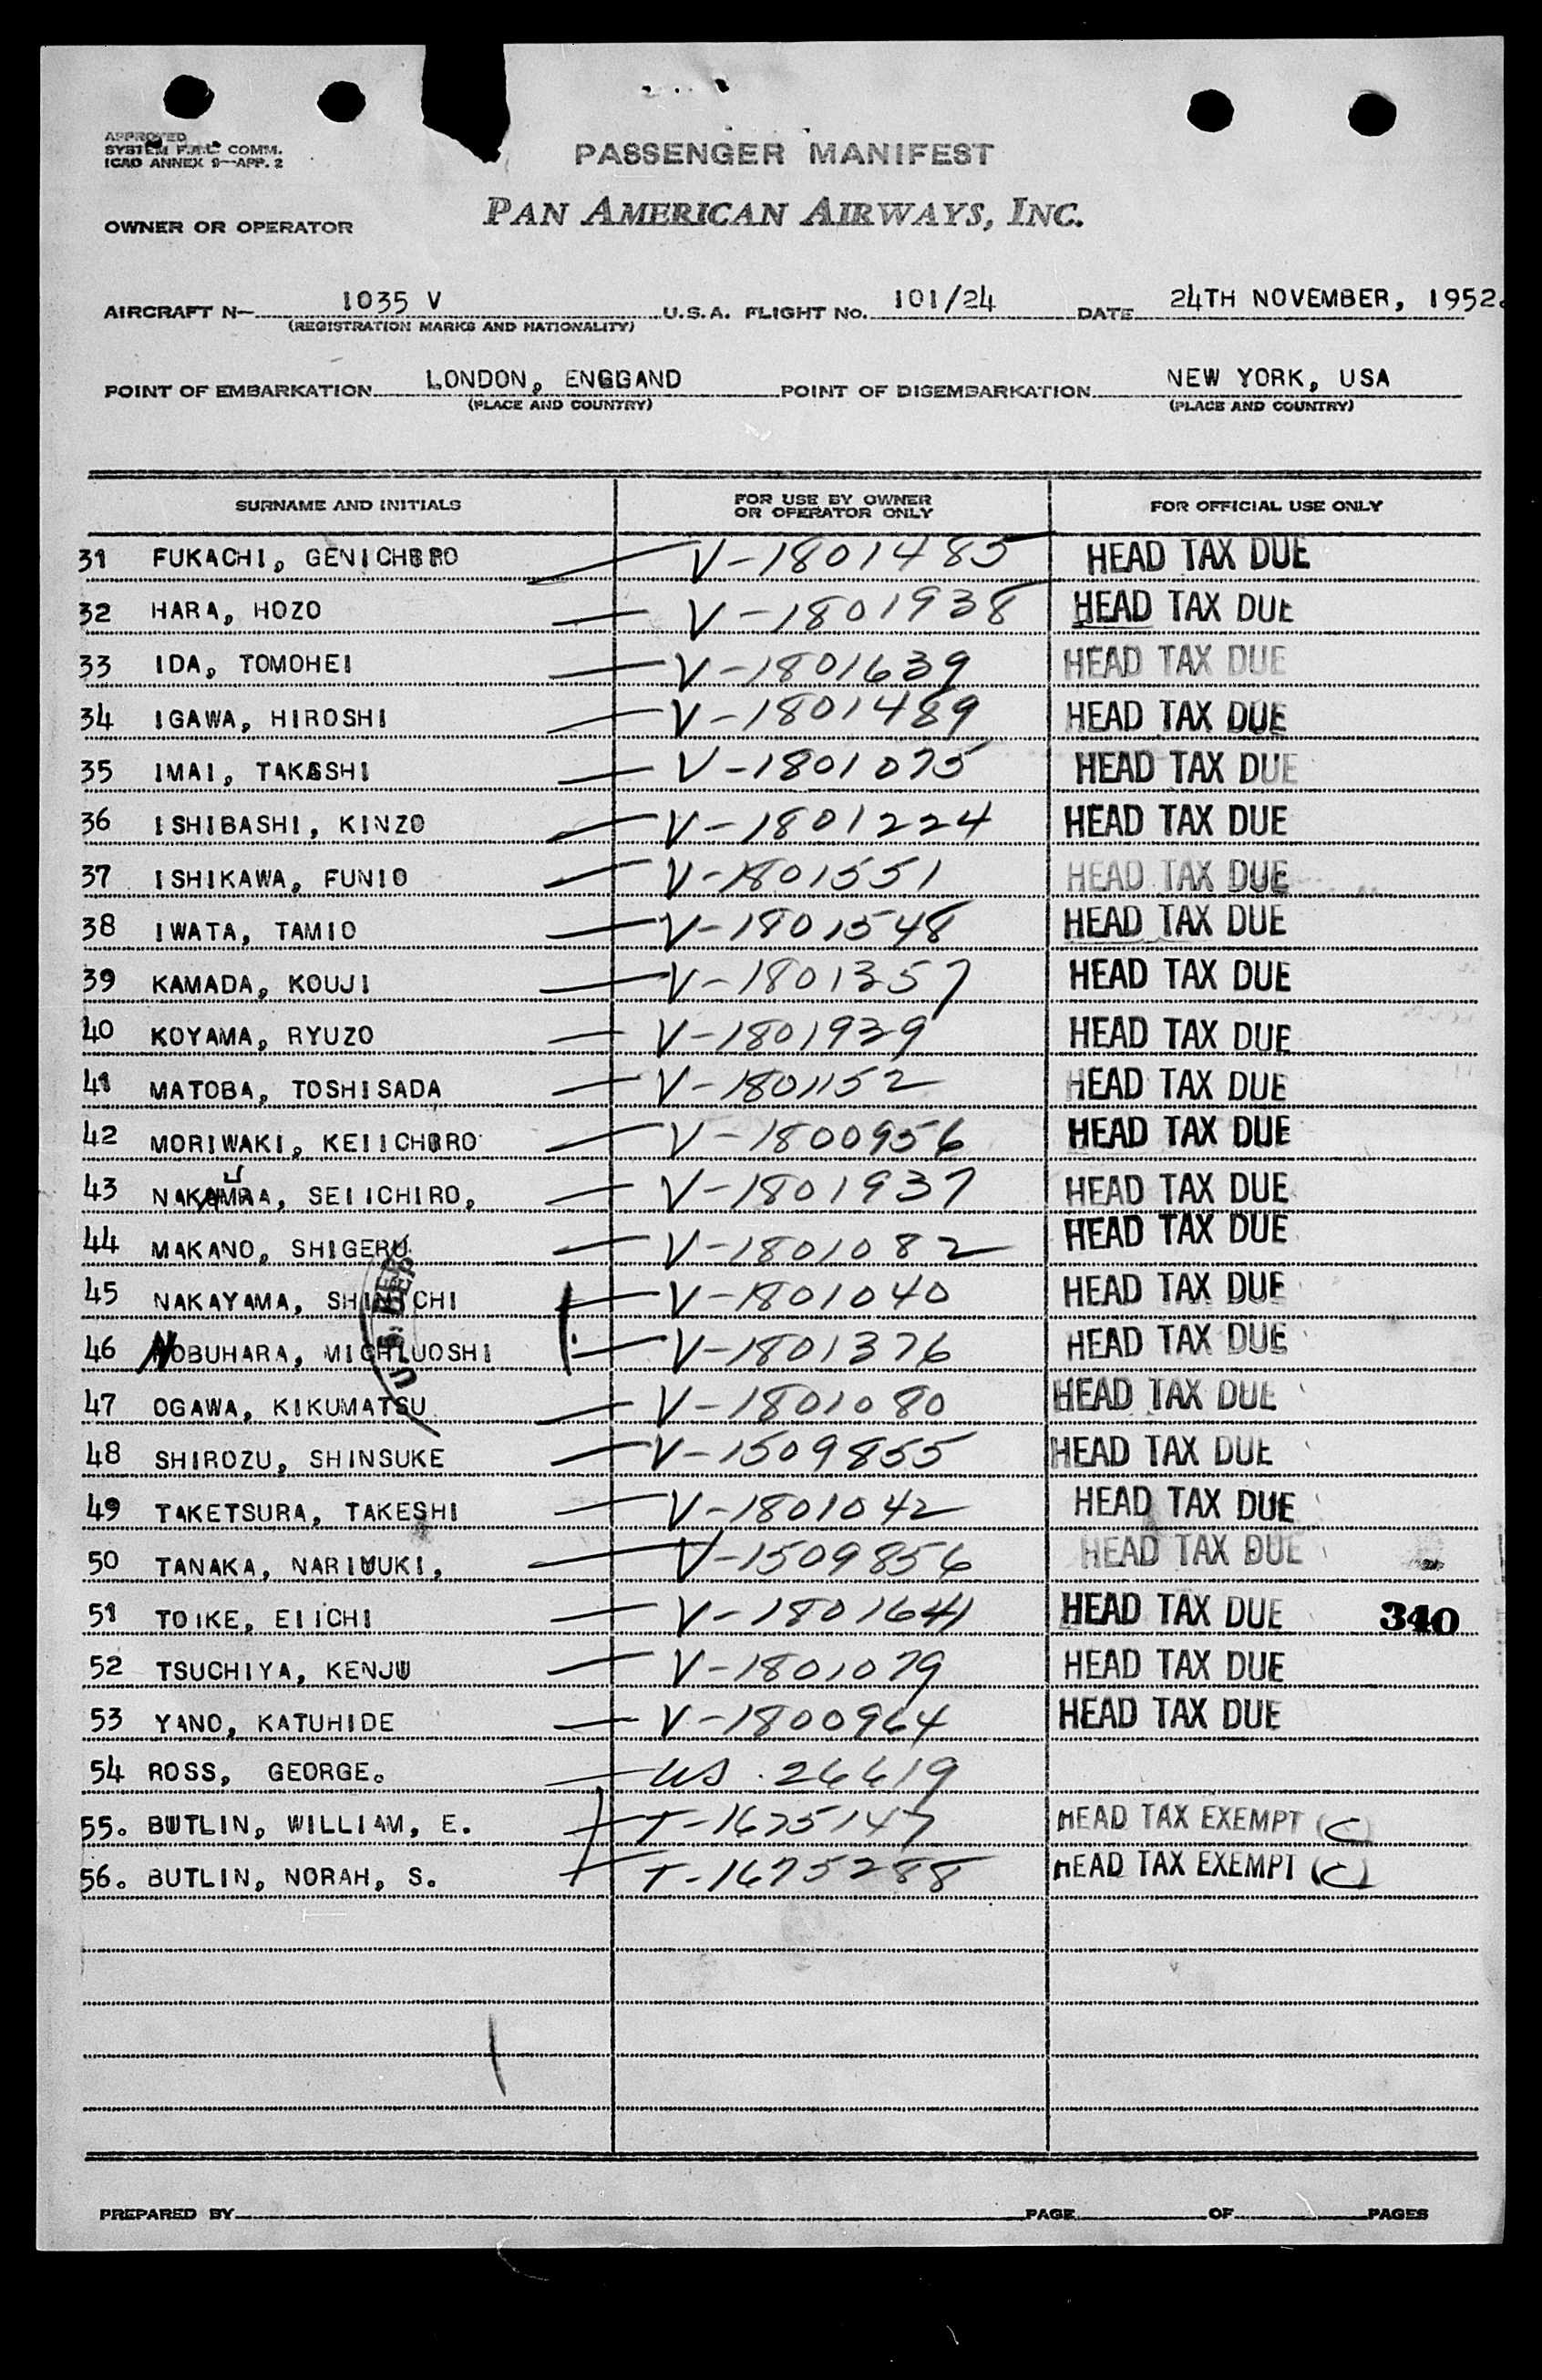 APPROVED
SYSTEM F.A.L. COMM.
ICAO ANNEX 9—APP. 2
PASSENGER MANIFEST
OWNER OR OPERATOR PAN AMERICAN AIRWAYS, INC.
AIRCRAFT N— 1035 V U.S.A. FLIGHT NO. 101/24 DATE 24TH NOVEMBER, 1952.
(REGISTRATION MARKS AND NATIONALITY)
POINT OF EMBARKATION LONDON, ENGGAND POINT OF DISEMBARKATION NEW YORK, USA
(PLACE AND COUNTRY) (PLACE AND COUNTRY)
SURNAME AND INITIALS FOR USE BY OWNER OR OPERATOR ONLY FOR OFFICIAL USE ONLY
31 FUKACHI, GENICHORO V-1801485 HEAD TAX DUE
32 HARA, HOZO V-1801938 HEAD TAX DUE
33 IDA, TOMOHEI V-1801639 HEAD TAX DUE
34 IGAWA, HIROSHI V-1801489 HEAD TAX DUE
35 IMAI, TAKASHI V-1801075 HEAD TAX DUE
36 ISHIBASHI, KINZO V-1801224 HEAD TAX DUE
37 ISHIKAWA, FUNIO V-1801551 HEAD TAX DUE
38 IWATA, TAMIO V-1801548 HEAD TAX DUE
39 KAMADA, KOUJI V-1801357 HEAD TAX DUE
40 KOYAMA, RYUZO V-1801939 HEAD TAX DUE
41 MATOBA, TOSHISADA V-1801152 HEAD TAX DUE
42 MORIWAKI, KEIICHORO V-1800956 HEAD TAX DUE
43 NAKAMURA, SEIICHIRO, V-1801937 HEAD TAX DUE
44 MAKANO, SHIGERU V-1801082 HEAD TAX DUE
45 NAKAYAMA, SHINICHI V-1801040 HEAD TAX DUE
46 NOBUHARA, MICHLUOSHI V-1801376 HEAD TAX DUE
47 OGAWA, KIKUMATSU V-1801080 HEAD TAX DUE
48 SHIROZU, SHINSUKE V-1509855 HEAD TAX DUE
49 TAKETSURA, TAKESHI V-1801042 HEAD TAX DUE
50 TANAKA, NARIUUKI, V-1509856 HEAD TAX DUE
51 TOIKE, EIICHI V-1801641 HEAD TAX DUE 340
52 TSUCHIYA, KENJU V-1801079 HEAD TAX DUE
53 YANO, KATUHIDE V-1800964 HEAD TAX DUE
54 ROSS, GEORGE. US. 26619
55. BUTLIN, WILLIAM, E. T-1675147 HEAD TAX EXEMPT (C)
56. BUTLIN, NORAH, S. T-1675288 HEAD TAX EXEMPT (C)
PREPARED BY PAGE OF PAGES